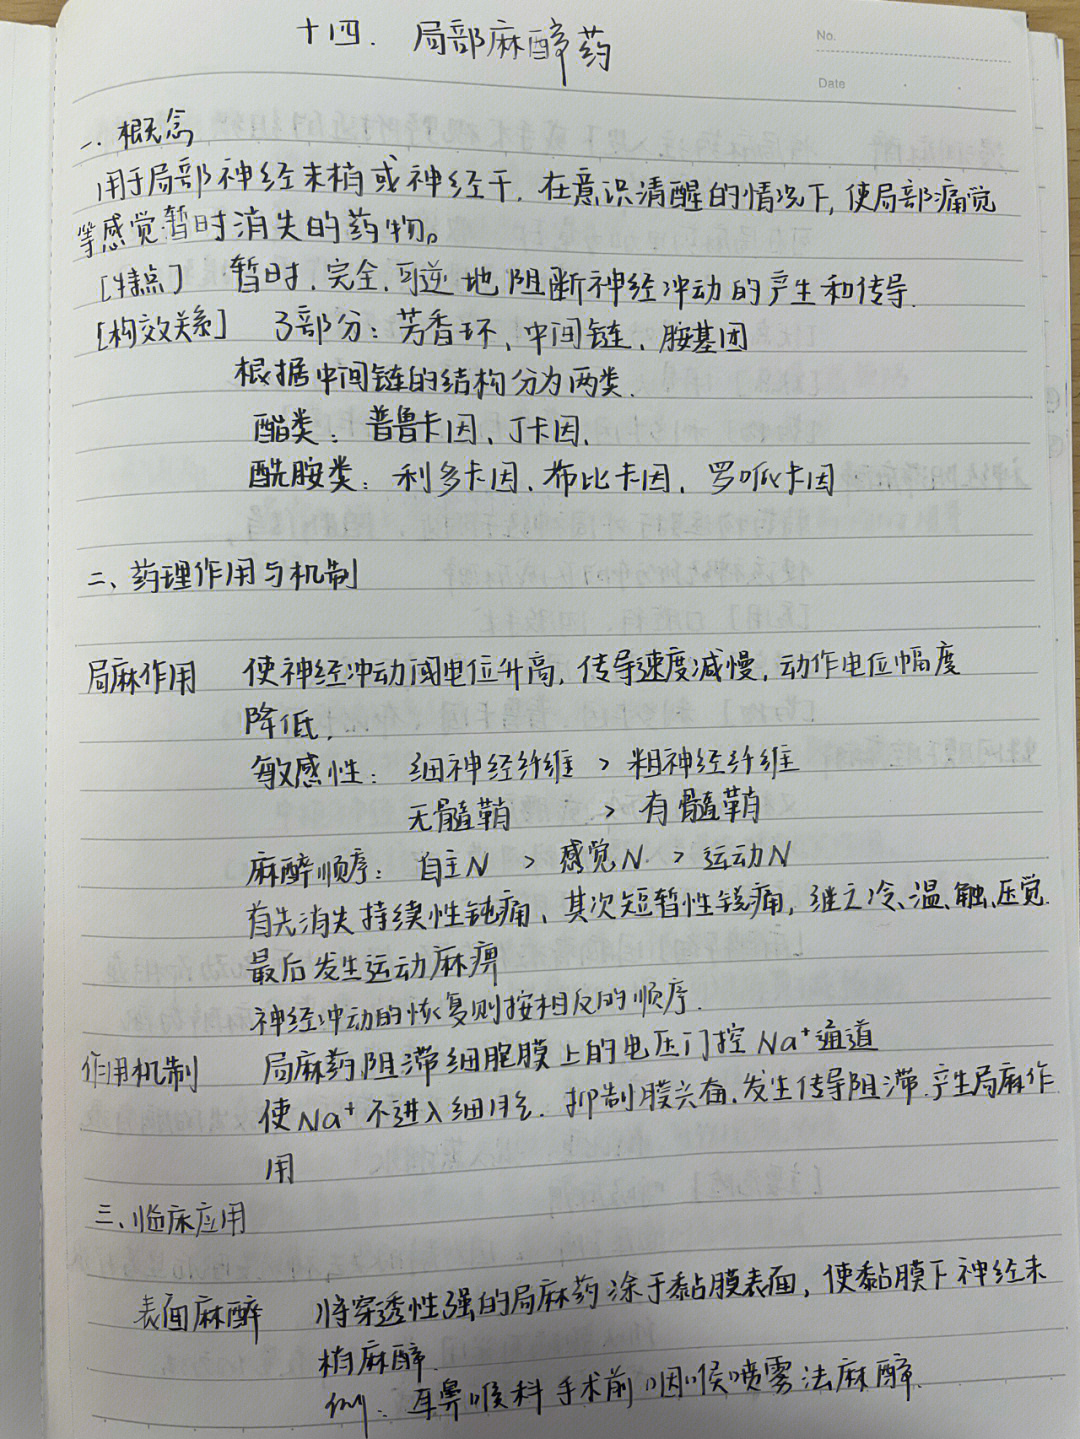 十四. 局部麻醉药
No.
Date
一. 概念
用于局部神经末梢或神经干, 在意识清醒的情况下, 使局部痛觉
等感觉暂时消失的药物。
[特点] 暂时、完全、可逆地阻断神经冲动的产生和传导.
[构效关系] 3部分: 芳香环、中间链、胺基团
根据中间链的结构分为两类.
酯类: 普鲁卡因、丁卡因.
酰胺类: 利多卡因、布比卡因、罗哌卡因
二、药理作用与机制
局麻作用 使神经冲动阈电位升高, 传导速度减慢, 动作电位幅度
降低.
敏感性: 细神经纤维 > 粗神经纤维
无髓鞘 > 有髓鞘
麻醉顺序: 自主N > 感觉N > 运动N
首先消失持续性钝痛、其次短暂性锐痛, 继之冷、温、触、压觉.
最后发生运动麻痹
神经冲动的恢复则按相反的顺序.
作用机制 局麻药阻滞细胞膜上的电压门控Na⁺通道
使Na⁺不进入细胞. 抑制膜兴奋. 发生传导阻滞. 产生局麻作
用
三、临床应用
表面麻醉 将穿透性强的局麻药涂于黏膜表面, 使黏膜下神经末
梢麻醉.
例: 耳鼻喉科手术前咽喉喷雾法麻醉.